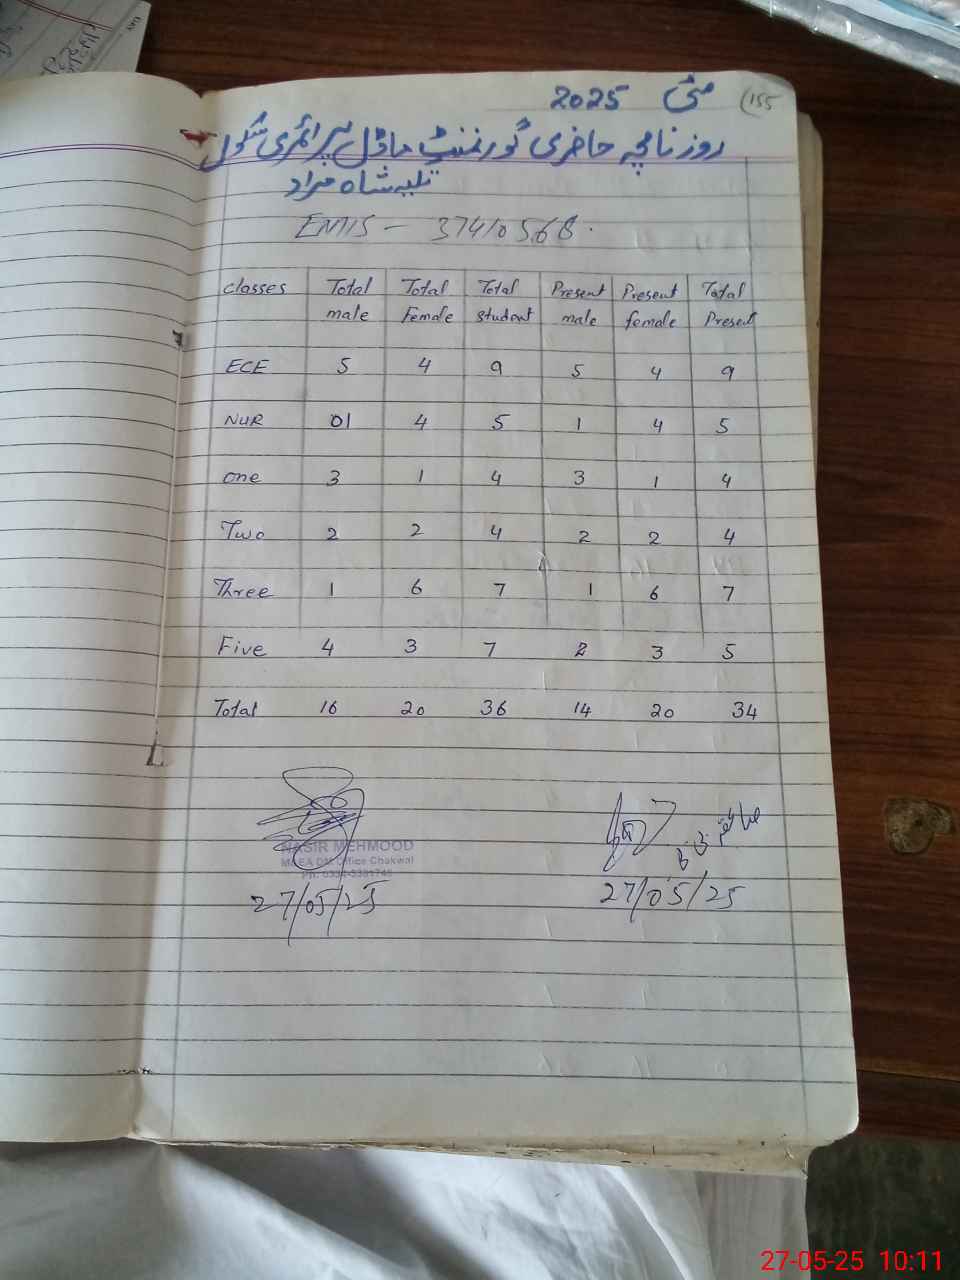 155
مئی 2025
روزنامچہ حاضری گورنمنٹ ماڈل پرائمری سکول
تکیہ شاہ مراد
EMIS - 37410568.
classes Total male Total Female Total student Present male Present female Total Present
ECE 5 4 9 5 4 9
NUR 01 4 5 1 4 5
one 3 1 4 3 1 4
Two 2 2 4 2 2 4
Three 1 6 7 1 6 7
Five 4 3 7 2 3 5
Total 16 20 36 14 20 34
NASIR MEHMOOD
MEA DM Office Chakwal
27/05/25
27/05/25
27-05-25 10:11